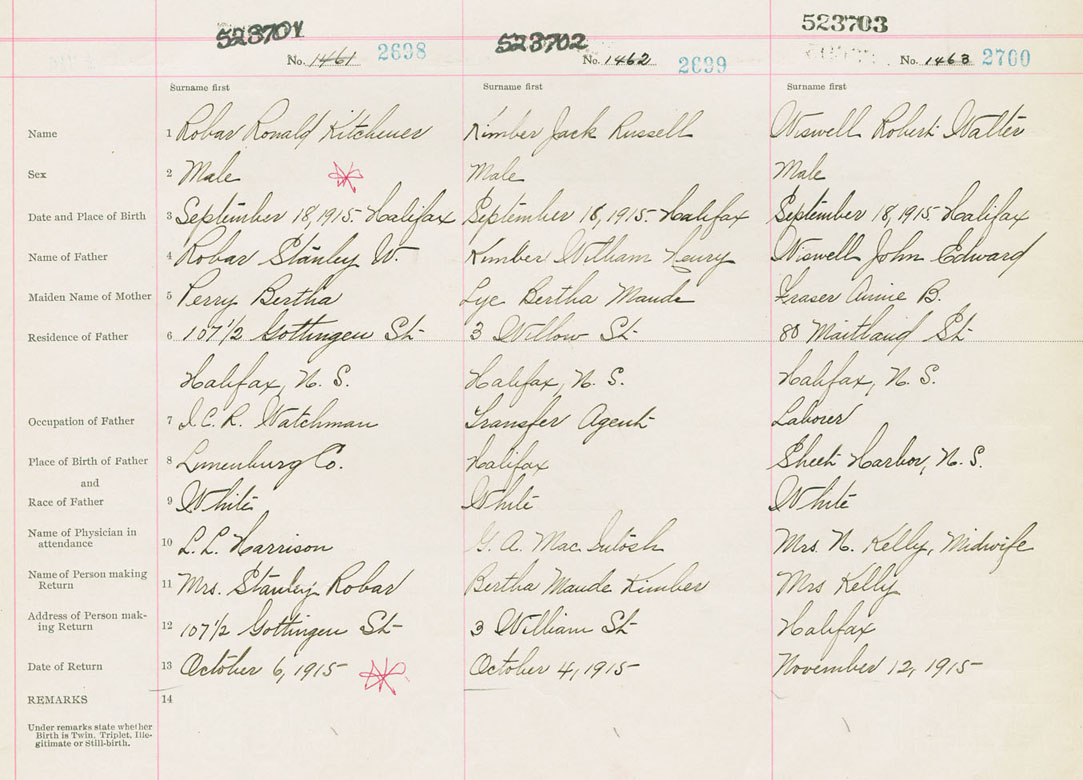 523701 523702 523703
No. 1461 2698 No. 1462 2699 No. 1463 2700
Surname first Surname first Surname first
Name 1 Robar Ronald Kitchener Kimber Jack Russell Wiswell Robert Walter
Sex 2 Male Male Male
Date and Place of Birth 3 September 18, 1915 - Halifax September 18, 1915 - Halifax September 18, 1915 - Halifax
Name of Father 4 Robar Stanley W. Kimber William Henry Wiswell John Edward
Maiden Name of Mother 5 Perry Bertha Lye Bertha Maude Fraser Annie B.
Residence of Father 6 107 1/2 Gottingen St- 3 Willow St- 80 Maitland St-
Halifax, N. S. Halifax, N. S. Halifax, N. S.
Occupation of Father 7 I. C. R. Watchman Transfer Agent Laborer
Place of Birth of Father 8 Lunenburg Co. Halifax Sheet Harbor, N. S.
and
Race of Father 9 White White White
Name of Physician in
attendance 10 L. L. Harrison G. A. MacIntosh Mrs. N. Kelly, Midwife
Name of Person making
Return 11 Mrs. Stanley Robar Bertha Maude Kimber Mrs Kelly
Address of Person mak-
ing Return 12 107 1/2 Gottingen St- 3 William St- Halifax
Date of Return 13 October 6, 1915 October 4, 1915 November 12, 1915
REMARKS 14
Under remarks state whether
Birth is Twin, Triplet, Ille-
gitimate or Still-birth.